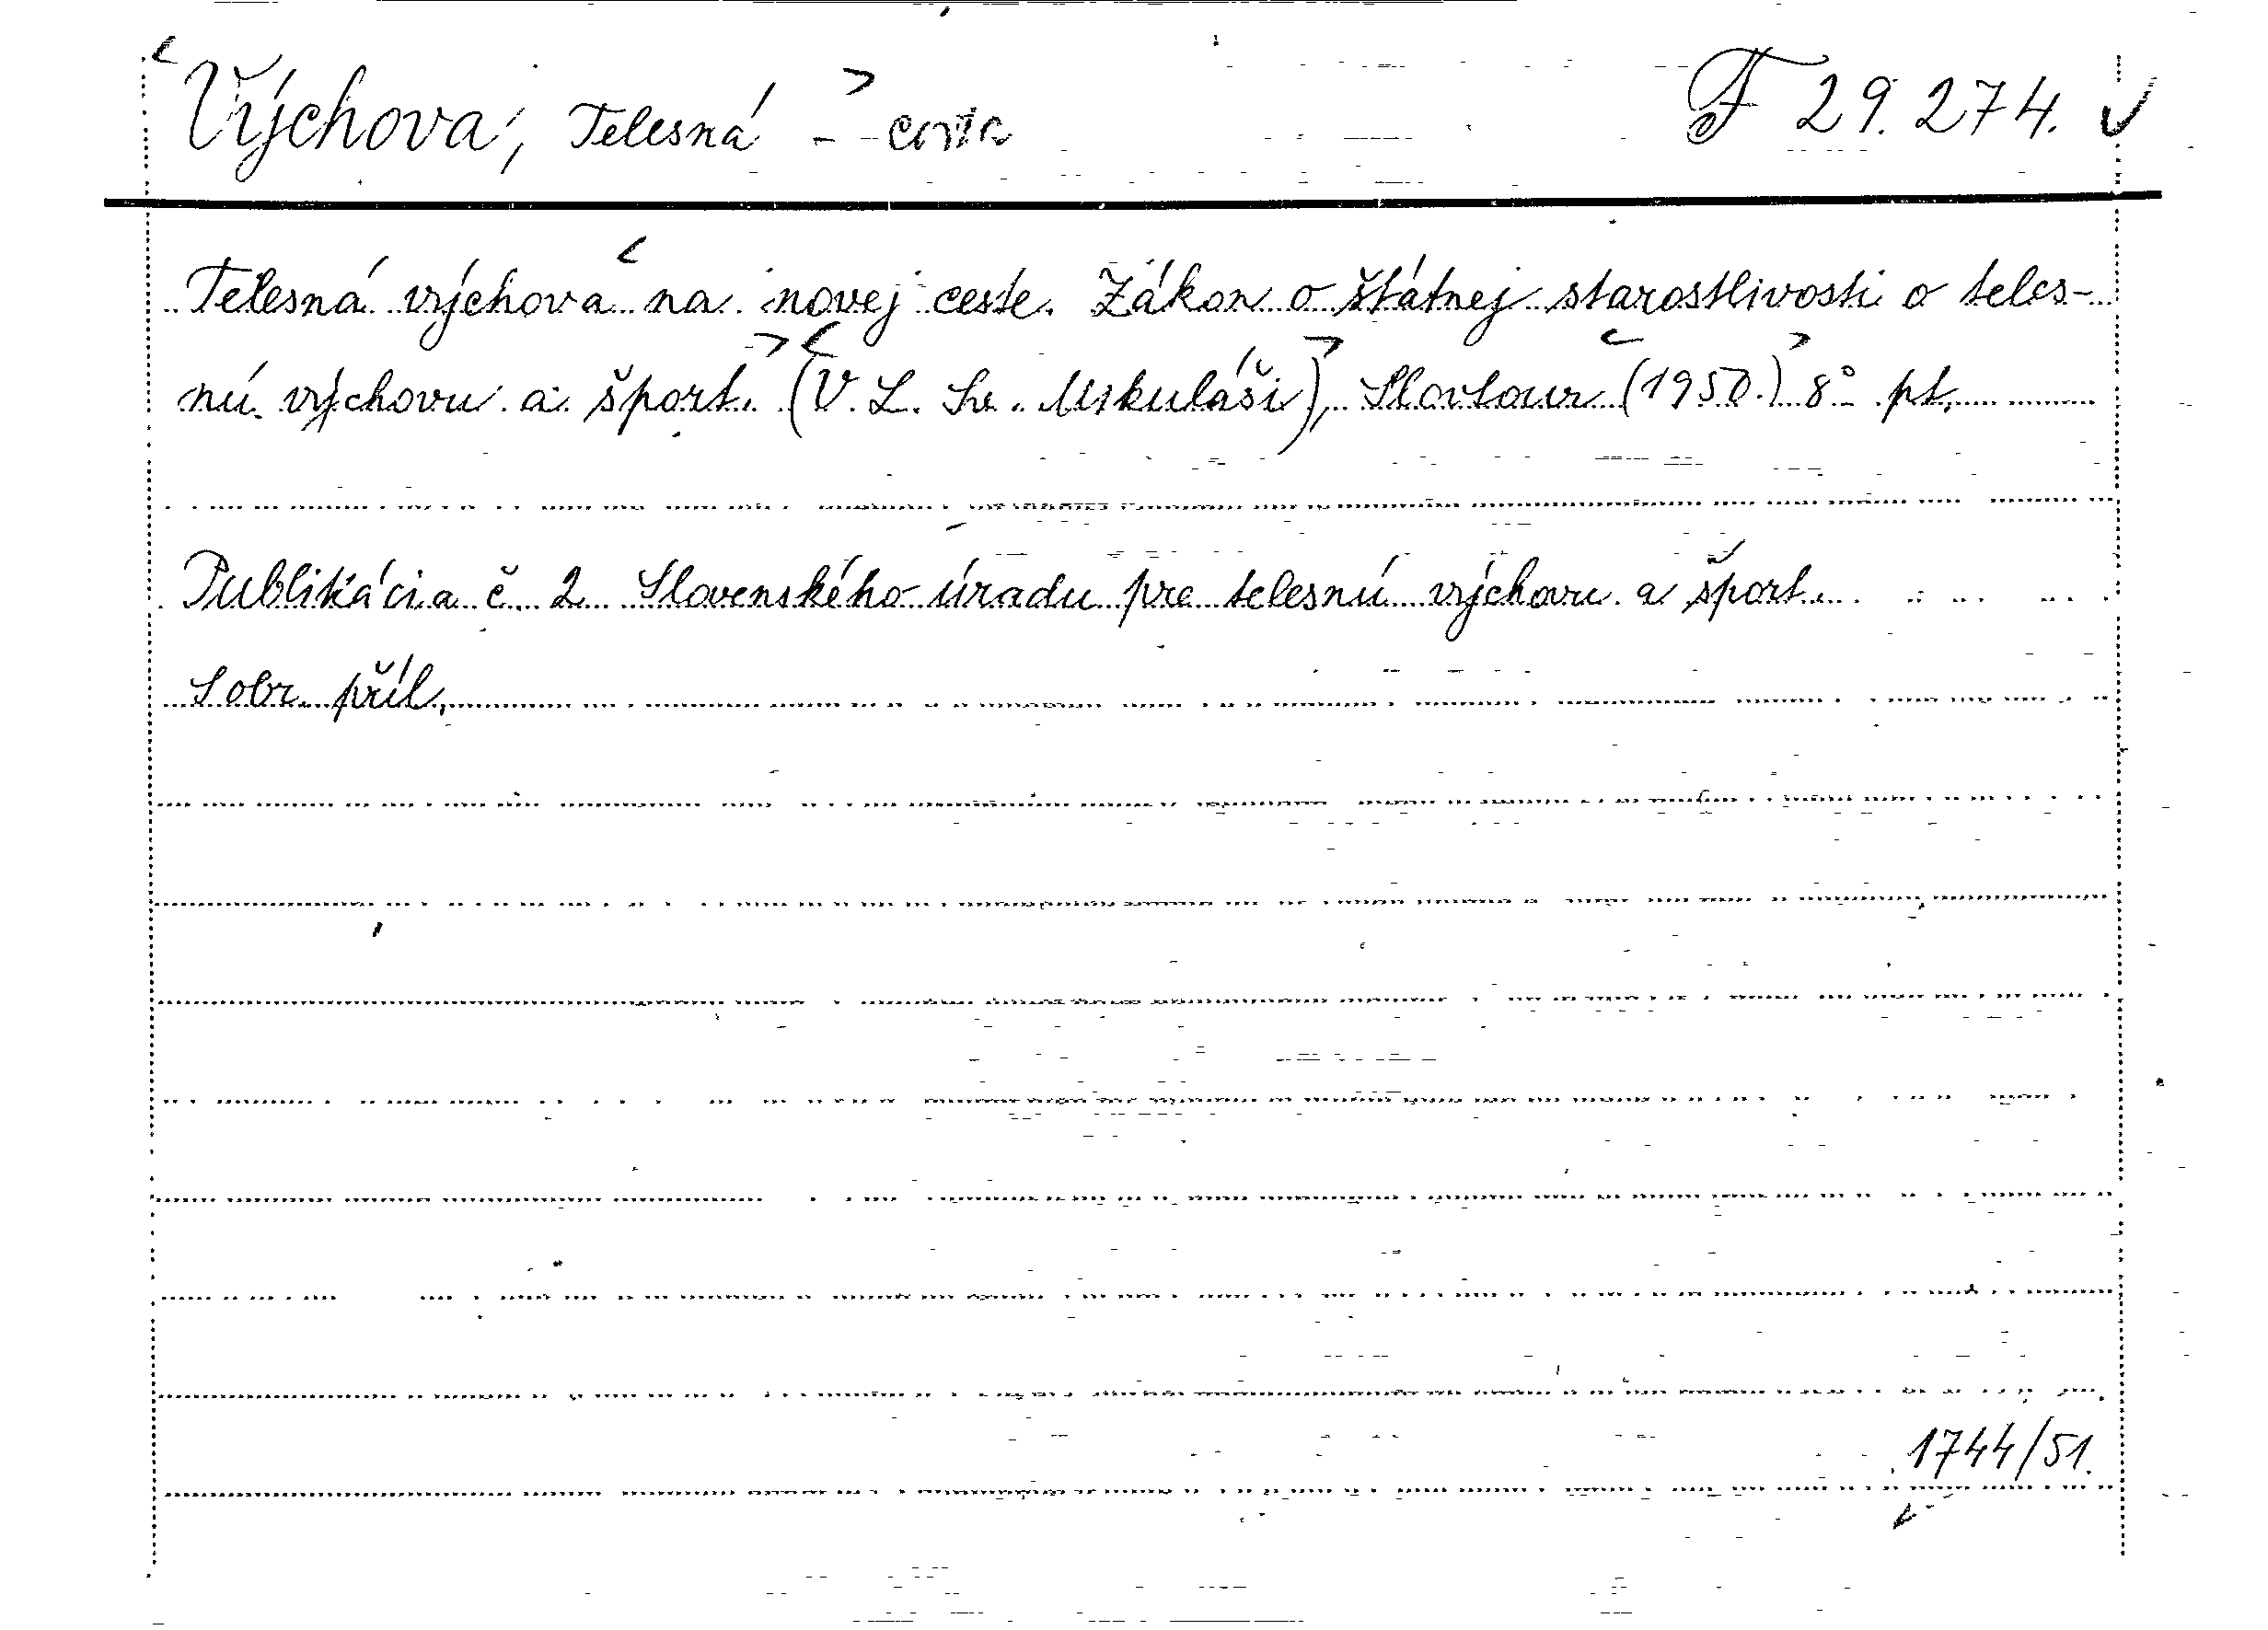 Výchova, Telesná - cesta F 29.274.
Telesná výchova na novej ceste. Zákon o štátnej starostlivosti o teles-
nú výchovu a šport. (V L. Sv. Mikuláši), Slovtour (1950.) 8° pt.
Publikácia č. 2 Slovenského úradu pre telesnú výchovu a šport.
S obr. příl.
1744/51.